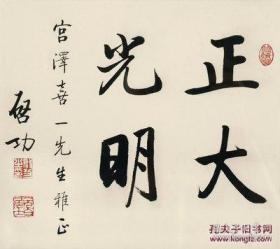 正大
光明
宫澤喜一先生雅正
啓功
孔夫子旧书网